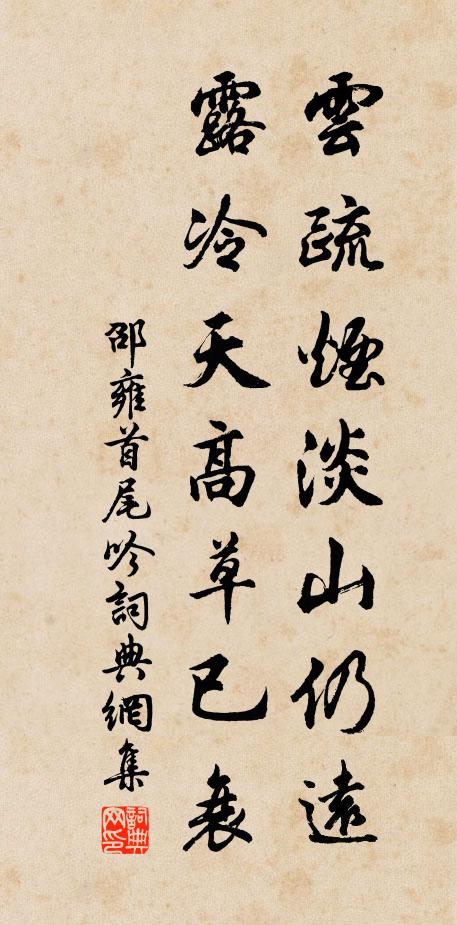 雲疏煙淡山仍遠
露冷天高草已衰
邵雍首尾吟詞典網集
詞典網印